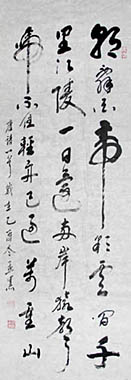 朝辞白帝彩雲間千
里江陵一日還兩岸猿聲
啼不住輕舟已過萬重山
唐詩一首 乙酉冬